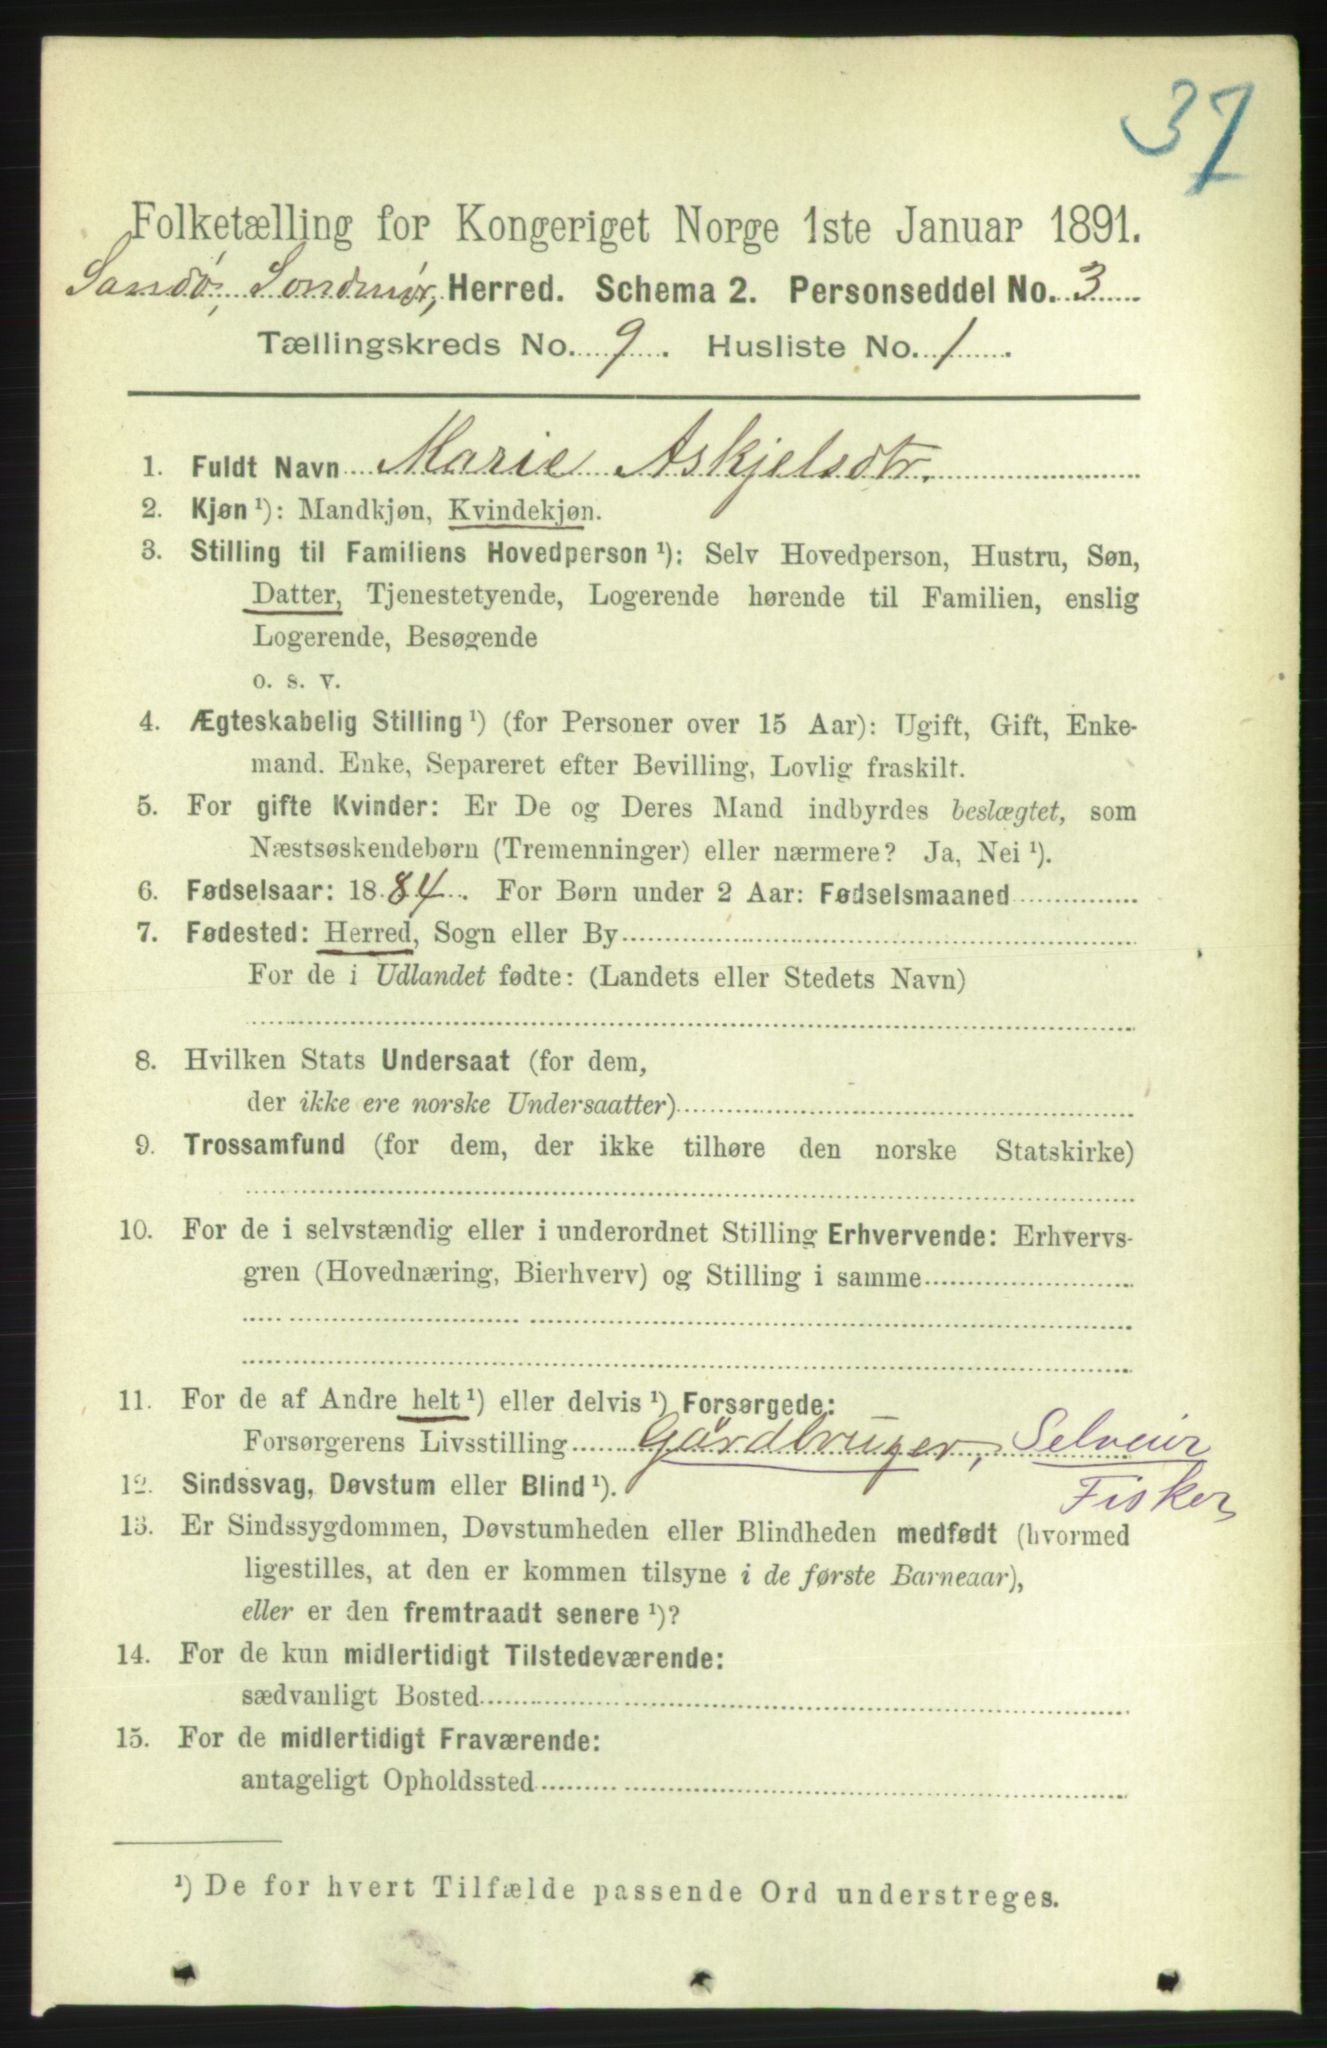 37
Folketælling for Kongeriget Norge 1ste Januar 1891.
Sandø, Søndmør, Herred. Schema 2. Personseddel No. 3
Tællingskreds No. 9. Husliste No. 1.
1. Fuldt Navn Marie Askjelsdtr.
2. Kjøn ¹): Mandkjøn, Kvindekjøn.
3. Stilling til Familiens Hovedperson ¹): Selv Hovedperson, Hustru, Søn,
Datter, Tjenestetyende, Logerende hørende til Familien, enslig
Logerende, Besøgende
o. s. v.
4. Ægteskabelig Stilling ¹) (for Personer over 15 Aar): Ugift, Gift, Enke-
mand. Enke, Separeret efter Bevilling, Lovlig fraskilt.
5. For gifte Kvinder: Er De og Deres Mand indbyrdes beslægtet, som
Næstsøskendebørn (Tremenninger) eller nærmere? Ja, Nei ¹).
6. Fødselsaar: 1884. For Børn under 2 Aar: Fødselsmaaned
7. Fødested: Herred, Sogn eller By
For de i Udlandet fødte: (Landets eller Stedets Navn)
8. Hvilken Stats Undersaat (for dem,
der ikke ere norske Undersaatter)
9. Trossamfund (for dem, der ikke tilhøre den norske Statskirke)
10. For de i selvstændig eller i underordnet Stilling Erhvervende: Erhvervs-
gren (Hovednæring, Bierhverv) og Stilling i samme
11. For de af Andre helt ¹) eller delvis ¹) Forsørgede:
Forsørgerens Livsstilling Gårdbruger, Selveier
Fisker
12. Sindssvag, Døvstum eller Blind ¹).
13. Er Sindssygdommen, Døvstumheden eller Blindheden medfødt (hvormed
ligestilles, at den er kommen tilsyne i de første Barneaar),
eller er den fremtraadt senere ¹)?
14. For de kun midlertidigt Tilstedeværende:
sædvanligt Bosted
15. For de midlertidigt Fraværende:
antageligt Opholdssted
¹) De for hvert Tilfælde passende Ord understreges.